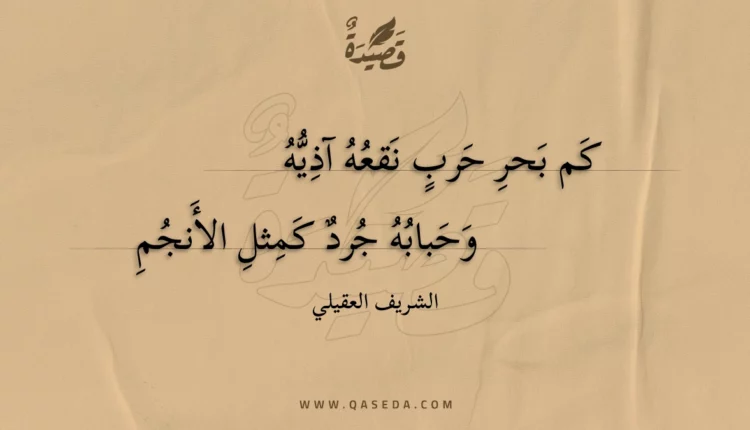 قَصِيدَةٌ
كَم بَحرِ حَربٍ نَقعُهُ آذِيُّهُ
وَحَبابُهُ جُردٌ كَمِثلِ الأَنجُمِ
الشريف العقيلي
WWW.QASEDA.COM